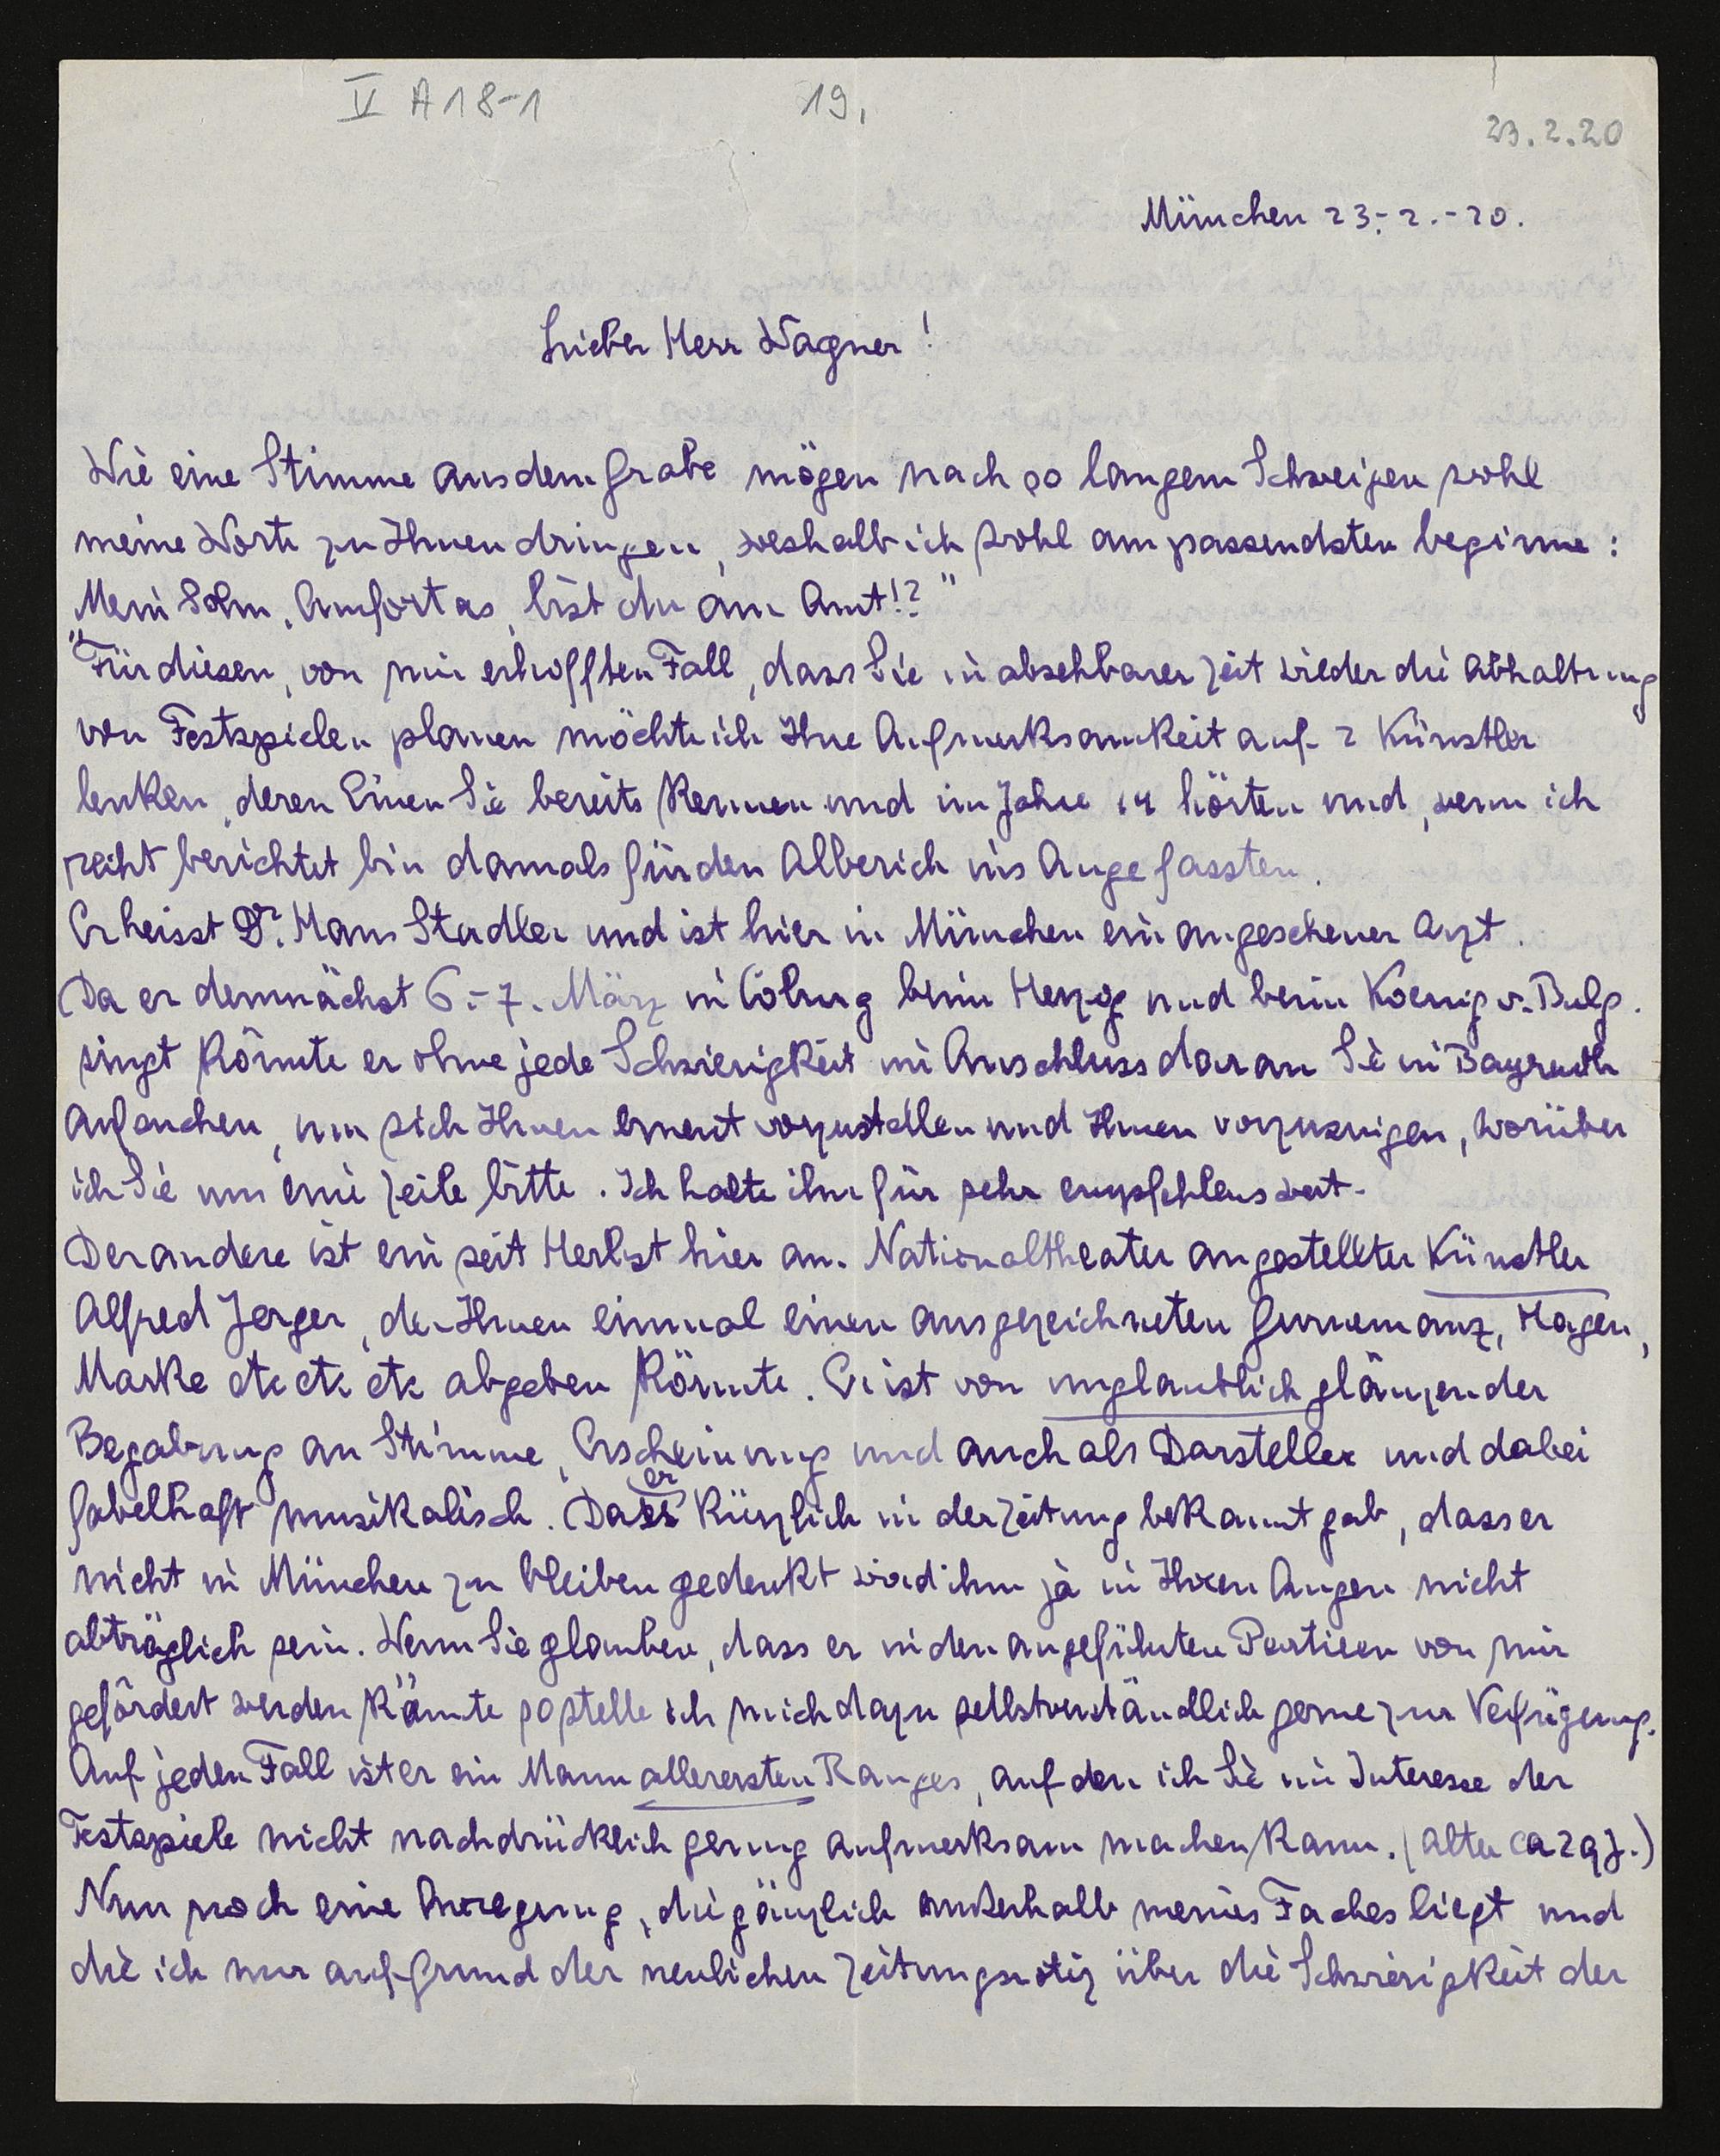 V A18-1 19,
23.2.20
München 23.-2.-20.
Lieber Herr Wagner!
Wie eine Stimme aus dem Grabe mögen nach so langem Schweigen wohl
meine Worte zu Ihnen dringen, weshalb ich wohl am passendsten beginne:
"Mein Sohn, Amfortas, bist du am Amt!?"
Für diesen, von mir erhofften Fall, dass Sie in absehbarer Zeit wieder die Abhaltung
von Festspielen planen möchte ich Ihre Aufmerksamkeit auf 2 Künstler
lenken, deren Einen Sie bereits kennen und im Jahre 14 hörten und, wenn ich
recht berichtet bin damals für den Alberich ins Auge fassten.
Er heisst Dr. Hans Stadler und ist hier in München ein angesehener Arzt.
Da er demnächst 6.-7. März in Coburg beim Herzog und beim Koenig v. Bulg.
singt könnte er ohne jede Schwierigkeit im Anschluss daran Sie in Bayreuth
aufsuchen, um sich Ihnen erneut vorzustellen und Ihnen vorzusingen, worüber
ich Sie um eine Zeile bitte. Ich halte ihn für sehr empfehlenswert.
Der andere ist ein seit Herbst hier am Nationaltheater angestellter Künstler
Alfred Jerger, der Ihnen einmal einen ausgezeichneten Gurnemanz, Hagen,
Marke etc etc etc abgeben könnte. Er ist von unglaublich glänzender
Begabung an Stimme, Erscheinung und auch als Darsteller und dabei
fabelhaft musikalisch. Dass er kürzlich in der Zeitung bekannt gab, dass er
nicht in München zu bleiben gedenkt wird ihm ja in Ihren Augen nicht
abträglich sein. Wenn Sie glauben, dass er in den angeführten Partieen von mir
gefördert werden könnte so stelle ich mich dazu selbstverständlich gerne zur Verfügung.
Auf jeden Fall ist er ein Mann allerersten Ranges, auf den ich Sie im Interesse der
Festspiele nicht nachdrücklich genug aufmerksam machen kann. (Alter ca 29 J.)
Nun noch eine Anregung, die gänzlich außerhalb meines Faches liegt und
die ich nur auf Grund der neulichen Zeitungsnotiz über die Schwierigkeit der